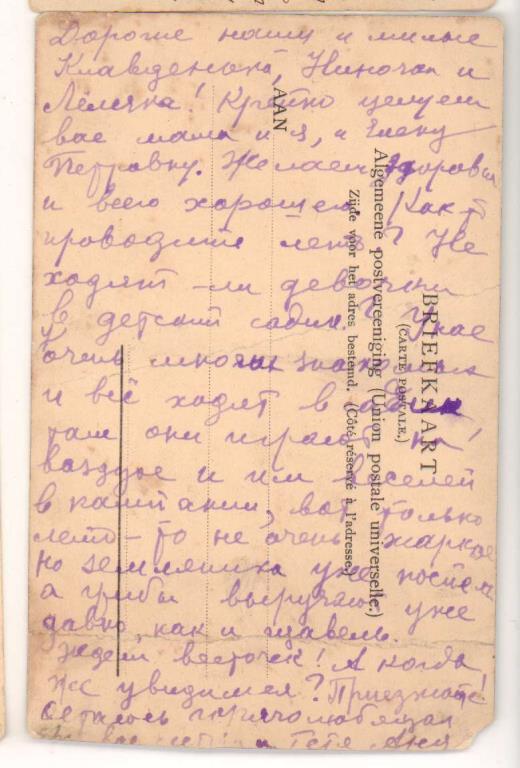 Дорогие наши и милые
Клавденька, Ниночка и
Лёлечка! Крепко целуем
вас мама и я, и Елену
Петровну. Желаем здоровья
и всего хорошего. Как
проводите лето? Не
ходят-ли девочки
в детский садик? У нас
очень многие
и всё ходят в садик
там они играют на
воздухе и им веселей
в компании, вот только
лето-то не очень жаркое
но земляника уже поспела
а грибы выручают уже
давно, как и щавель.
Ждем весточек! А когда
же увидимся? Приезжайте!
Остаюсь горячо любящая
вас тётя Аня
AAN
BRIEFKAART
(CARTE POSTALE.)
Algemeene postvereeniging (Union postale universelle.)
Zijde voor het adres bestemd. (Côté réservé à l'adresse.)